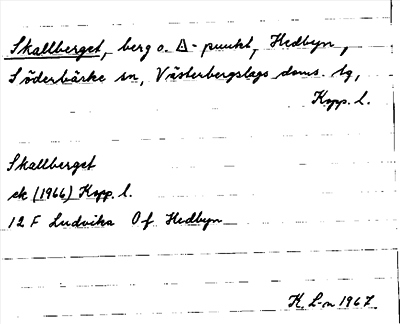 Skallberget, berg o. Δ-punkt, Hedbyn,
Söderbärke sn, Västerbergslags doms. tg,
Kopp. l.
Skallberget
ek (1966) Kopp. l.
12 F Ludvika 0 f Hedbyn
K. L-n 1967